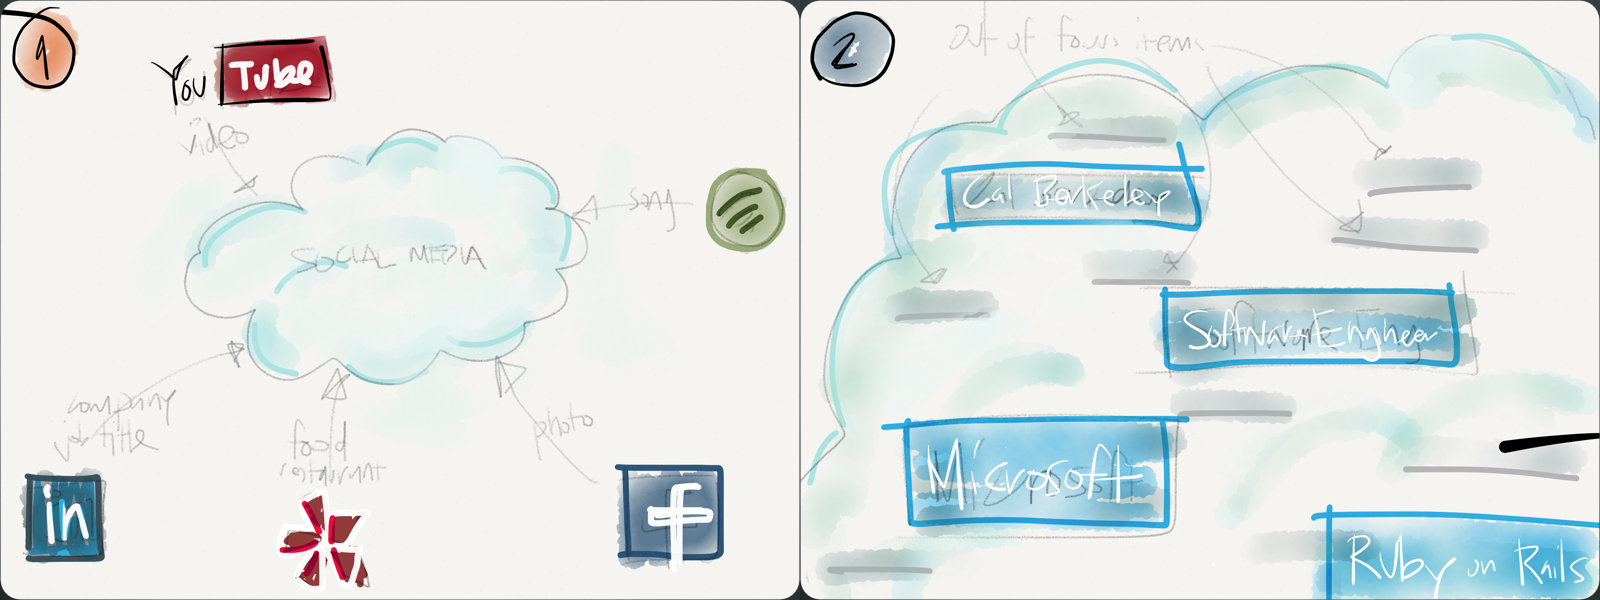 1
You Tube
video
song
SOCIAL MEDIA
company
job title
food
restaurant
photo
in
f
2
out of focus items
Cal Berkeley
Software Engineer
Microsoft
Ruby on Rails